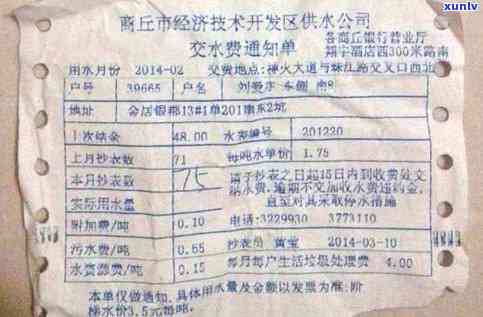 xunlv
商丘市经济技术开发区供水公司
交水费通知单
各商丘银行营业厅
翔宇酒店西300米路南
用水月份 2014-02 交费地点:神火大道与珠江路交叉口西北
户号 39665 户名 刘爱 东侧 南8
地址 金居银郡13#1单201南东2坑
上次结余 48.00 水表编号 201220
上月抄表数 71 每吨水单价 1.75
本月抄表数 75 请于抄表之日起15日内到收费处交
纳水费,逾期不交加收水费违约金,
实际用水量 直至对其采取停水措施
附加费/吨 0.10 电话:3229930 3773110
污水费/吨 0.65 抄表员 黄莹 2014-03-10
水资源费/吨 0.15 每月每户生活垃圾处理费 4.00
本单仅做通知,具体用水量及金额以发票为准;阶
梯水价3.5元每吨。